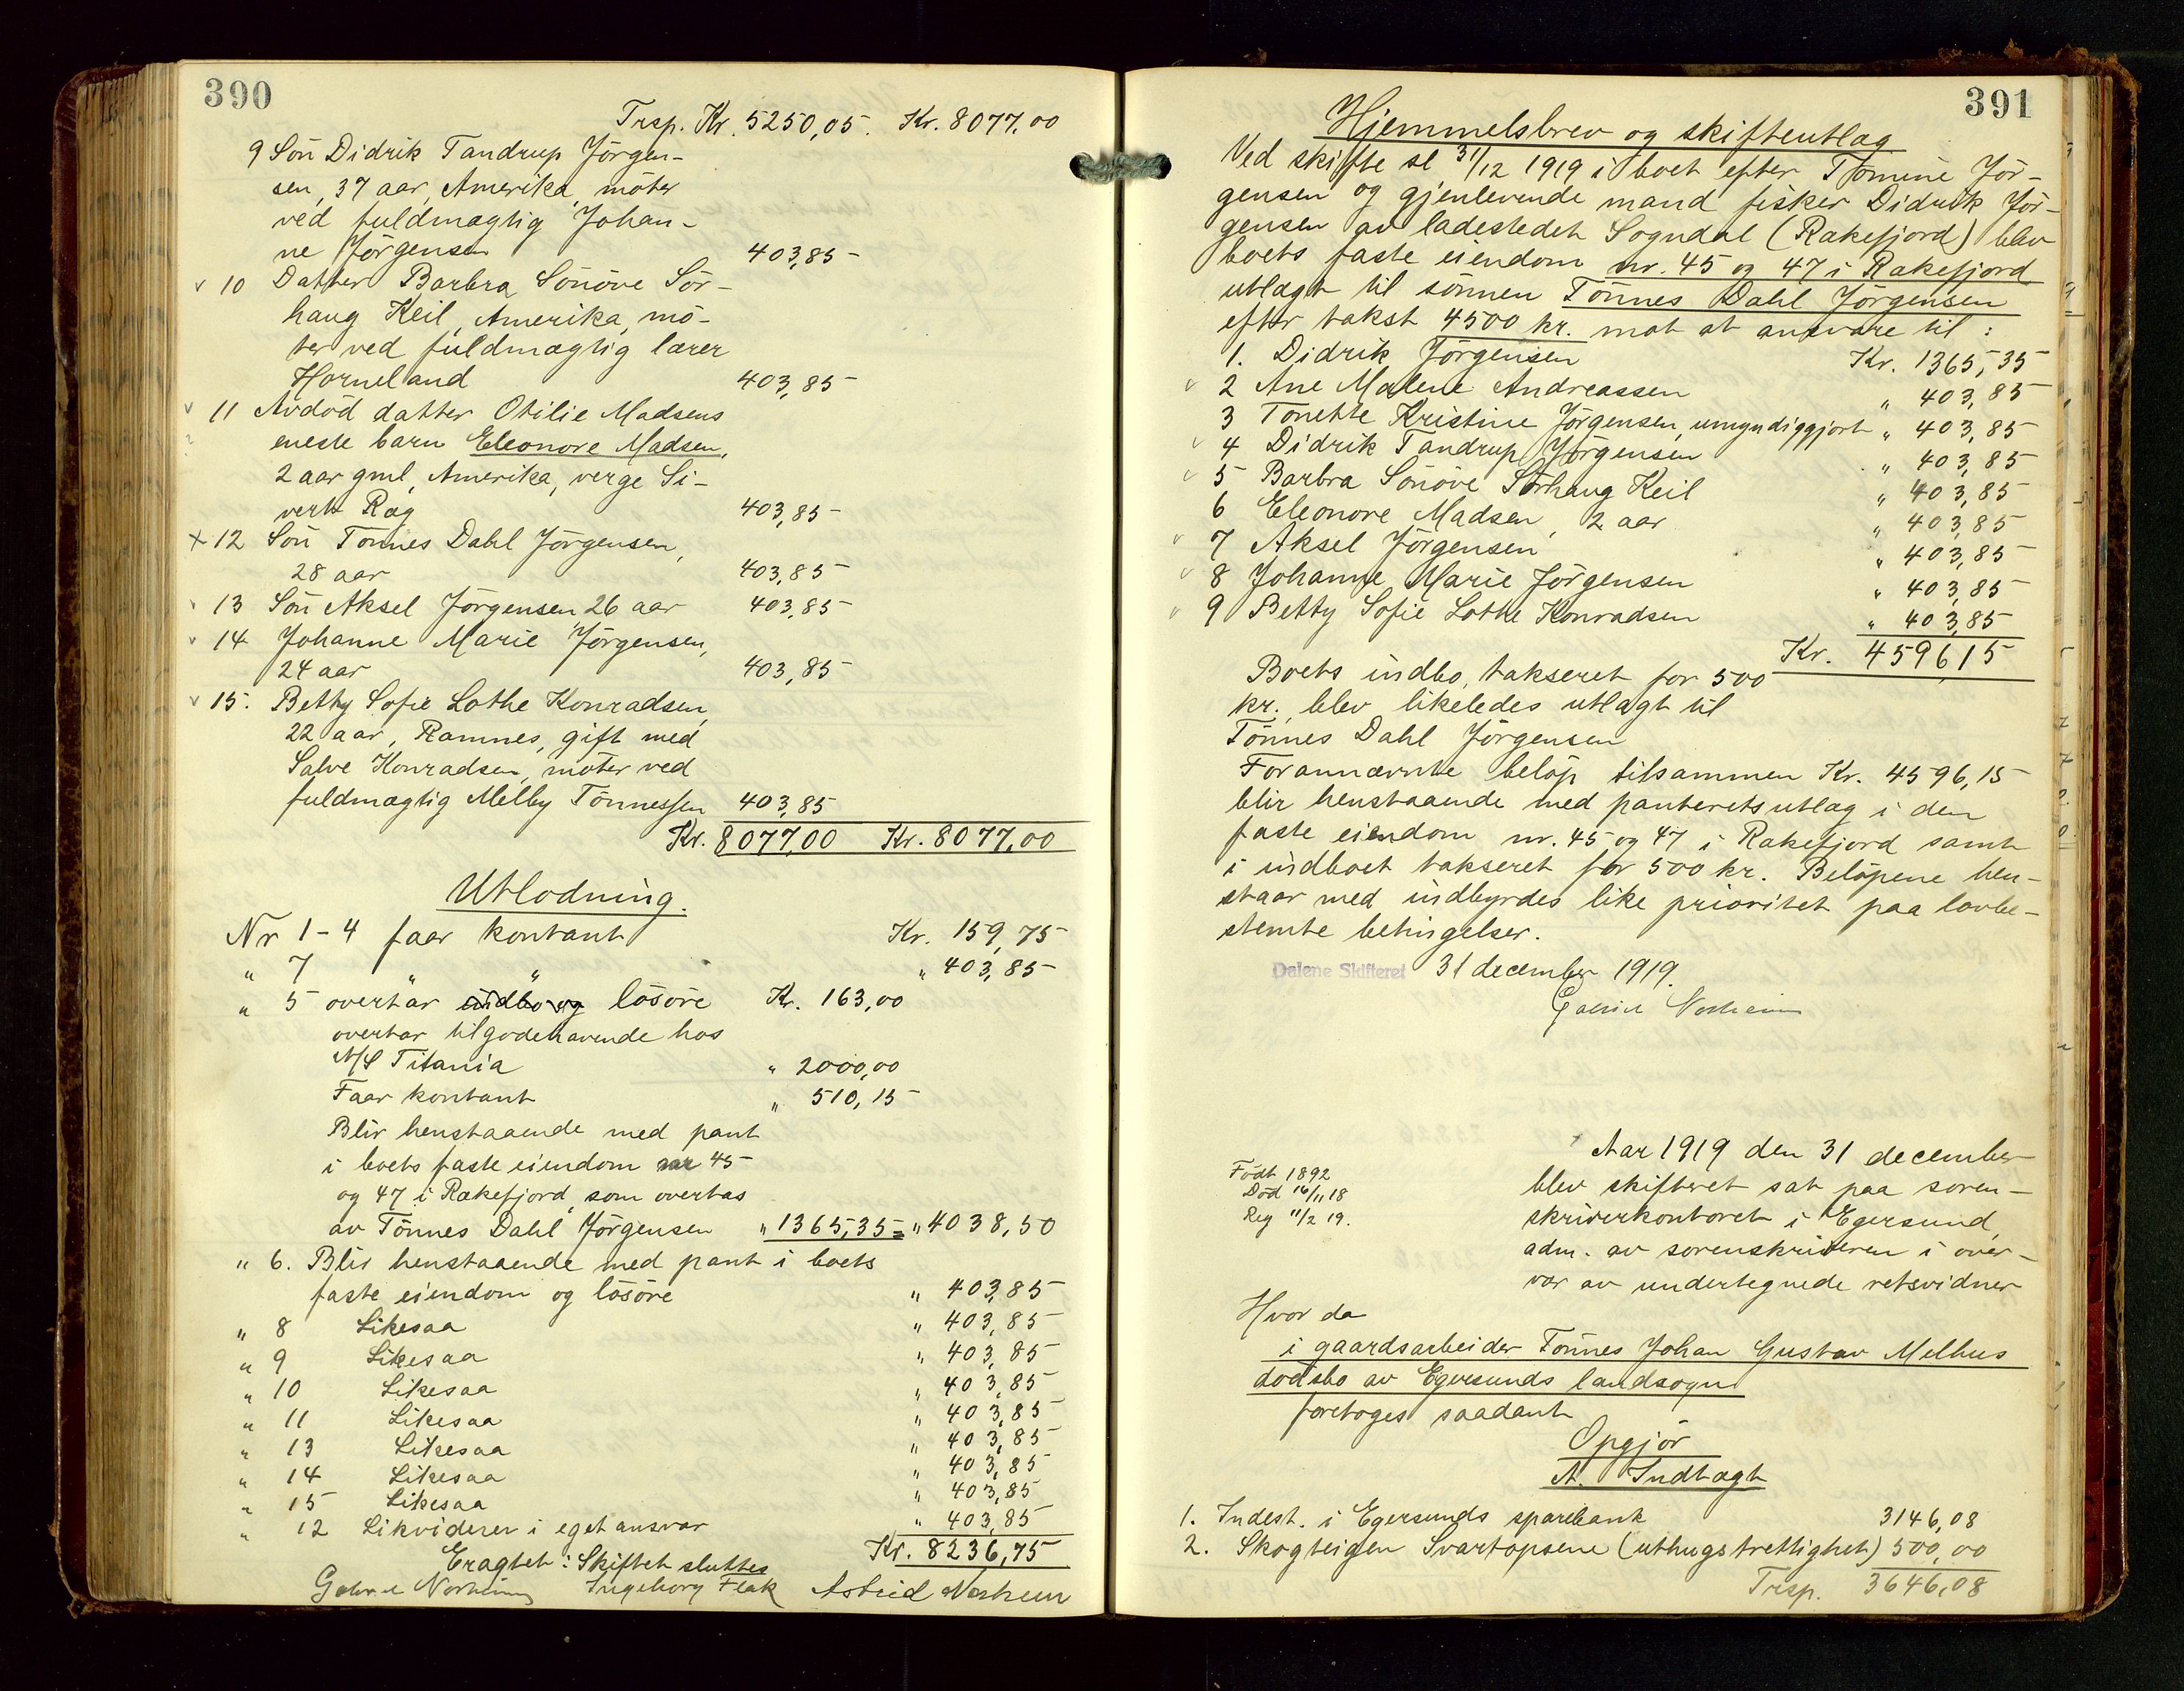 390
Trsp. Kr. 5250,05. Kr. 8077,00
9 Sön Didrik Tandrup Jörgen-
sen, 37 aar, Amerika, möter
ved fuldmægtig Johan-
ne Jörgensen 403,85
v 10 Datter Barbra Sönöve Sör-
haug Keil, Amerika, mö-
ter ved fuldmægtig lærer
Horneland 403,85
v 11 Avdöd datter Otilie Madsens
eneste barn Eleonore Madsen,
2 aar gml, Amerika, verge Si-
vert Rög 403,85
x 12 Sön Tönnes Dahl Jörgensen,
28 aar 403,85
v 13 Sön Aksel Jörgensen, 26 aar 403,85
v 14 Johanne Marie Jörgensen,
24 aar 403,85
v 15. Betty Sofie Lothe Konradsen,
22 aar, Ramnes, gift med
Salve Konradsen, möter ved
fuldmægtig Melby Tönnessen 403,85
Kr. 8077,00 Kr. 8077,00
Utlodning.
Nr 1-4 faar kontant Kr. 159,75
" 7 " " " 403,85
" 5 overtar indbo og lösöre Kr. 163,00
overtar tilgodehavende hos
A/S Titania " 2000,00
Faar kontant " 510,15
Blir henstaaende med pant
i boets faste eiendom nr 45
og 47 i Rakefjord, som overtas
av Tönnes Dahl Jörgensen " 1365,35 = " 4038,50
" 6. Blir henstaaende med pant i boets
faste eiendom og lösöre " 403,85
" 8 Likesaa " 403,85
" 9 Likesaa " 403,85
" 10 Likesaa " 403,85
" 11 Likesaa " 403,85
" 13 Likesaa " 403,85
" 14 Likesaa " 403,85
" 15 Likesaa " 403,85
" 12 Likviderer i eget ansvar " 403,85
Eragtet: Skiftet sluttes Kr. 8236,75
Gabriel Norheim Ingeborg Flak Astrid Norheim
391
Hjemmelsbrev og skifteutlæg
Ved skifte sl. 31/12 1919 i boet efter Tomine Jör-
gensen og gjenlevende mand fisker Didrik Jör-
gensen av ladestedet Sogndal (Rakefjord) blev
boets faste eiendom nr. 45 og 47 i Rakefjord
utlagt til sönnen Tönnes Dahl Jörgensen
efter takst 4500 kr. mot at ansvare til:
1. Didrik Jörgensen Kr. 1365,35
v 2 Ane Malene Andreassen " 403,85
3 Tonette Kristine Jörgensen, umyndiggjort " 403,85
v 4 Didrik Tandrup Jörgensen " 403,85
v 5 Barbra Sönöve Sörhaug Keil " 403,85
6 Eleonore Madsen, 2 aar " 403,85
v 7 Aksel Jörgensen " 403,85
v 8 Johanne Marie Jörgensen " 403,85
v 9 Betty Sofie Lothe Konradsen " 403,85
Kr. 4596,15
Boets indbo, takseret for 500
kr., blev likeledes utlagt til
Tönnes Dahl Jörgensen
Forannævnte belöp tilsammen Kr. 4596,15
blir henstaaende med panteretsutlæg i den
faste eiendom nr. 45 og 47 i Rakefjord samt
i indboet takseret for 500 kr. Belöpene hen-
staar med indbyrdes like prioritet paa lovbe-
stemte betingelser.
Dalene Skifteret 31 december 1919.
Gabriel Norheim
Aar 1919 den 31 december
blev skifteret sat paa soren-
skriverkontoret i Egersund,
adm. av sorenskriveren i over-
vær av undertegnede retsvidner
Födt 1892
Död 16/11 18
Reg 11/2 19.
Hvor da
i gaardsarbeider Tönnes Johan Gustav Melhus
dödsbo av Egersunds landsogn
foretoges saadant
Opgjör
A. Indtægt
1. Indest. i Egersunds sparebank 3146,08
2. Skogteigen Svartopsene (uthugstrettighet) 500,00
Trsp. 3646,08